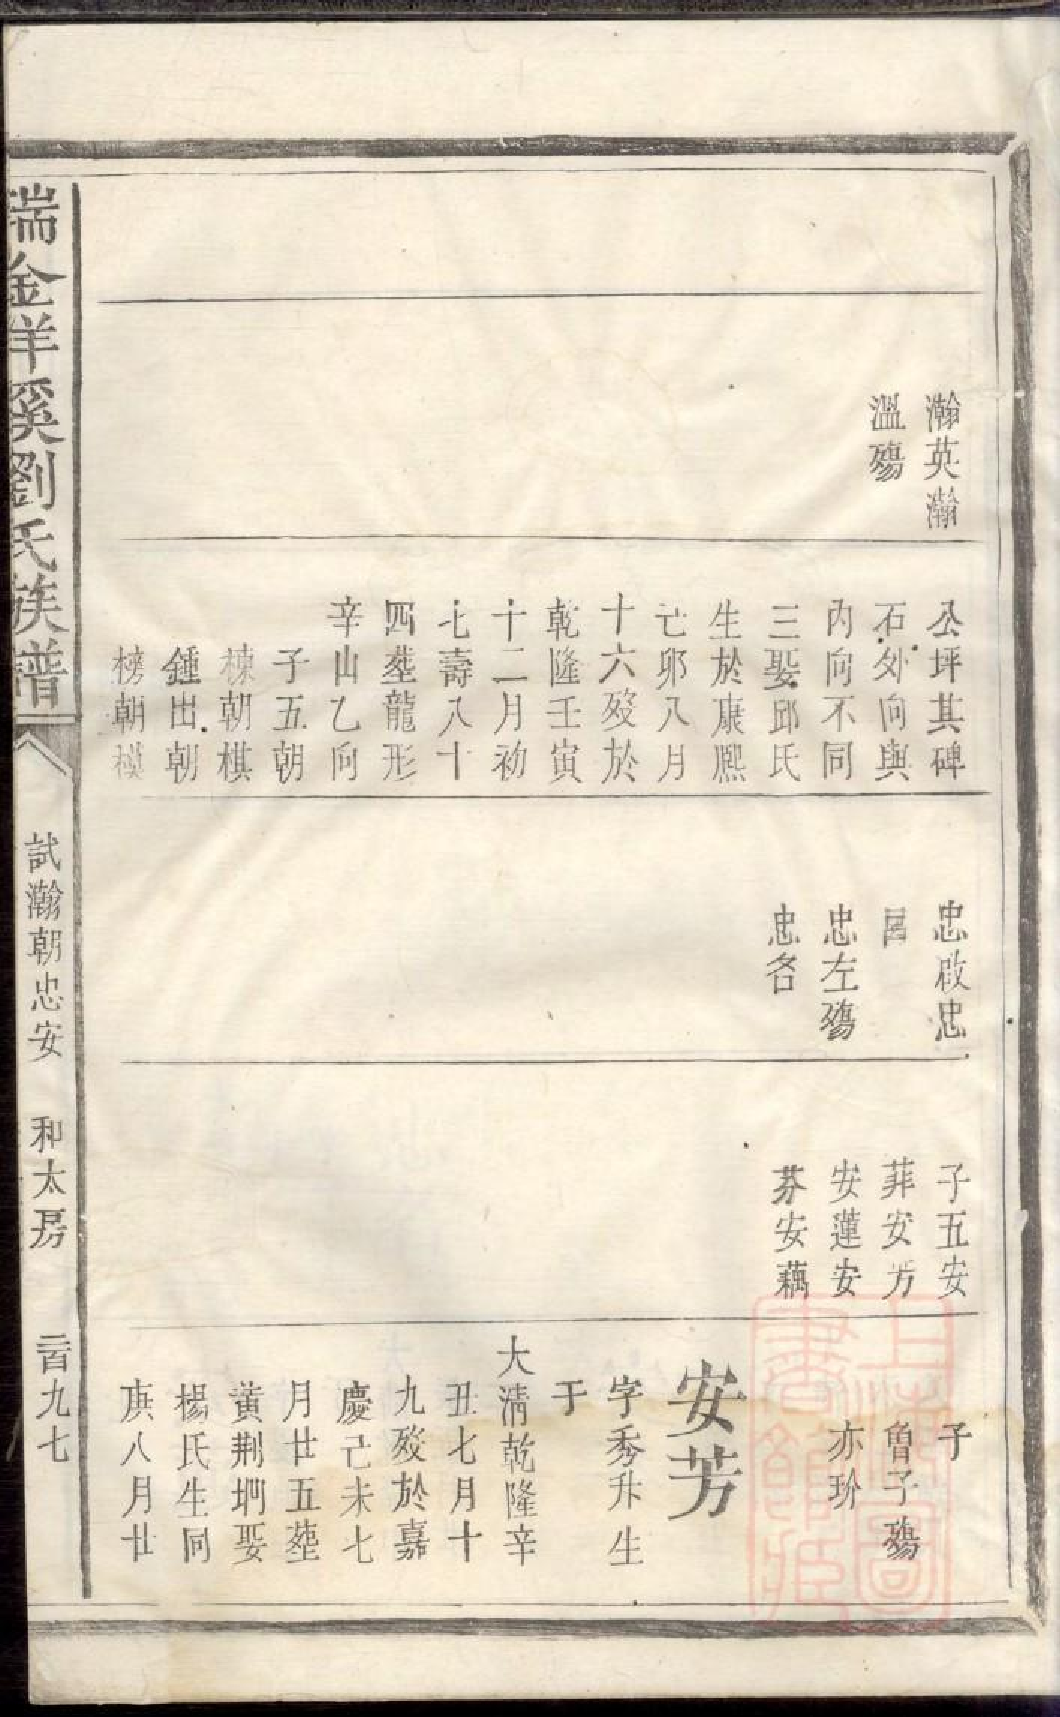 瀚英瀚
溫殤
公坪其碑
石外向與
內向不同
三娶邱氏
生於康熙
己卯八月
十六歿於
乾隆壬寅
十二月初
七壽八十
四塟龍形
辛山乙向
子五朝
棟朝棋
鍾出朝
榜朝模
忠啟忠
呂
忠左殤
忠各
子五安
菲安芳
安蓮安
芬安藕
子
魯子殤
亦玠
安芳
字秀升生
于
大清乾隆辛
丑七月十
九歿於嘉
慶己未七
月廿五塟
黃荆垇娶
楊氏生同
庚八月廿
瑞金洋溪劉氏族譜
試瀚朝忠安
和太房
二百九七
上海圖書館藏